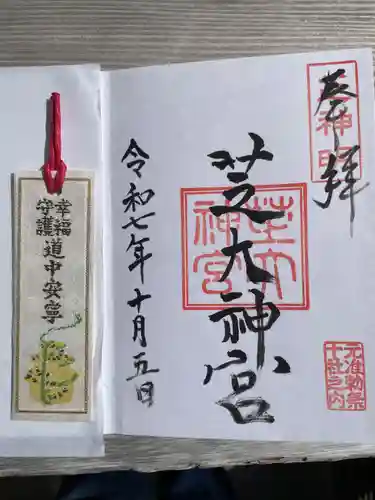 奉拝
芝大神宮
令和七年十月五日
神明
芝大
神宮
元准勅祭
十社之内
幸福
守護
道中安寧